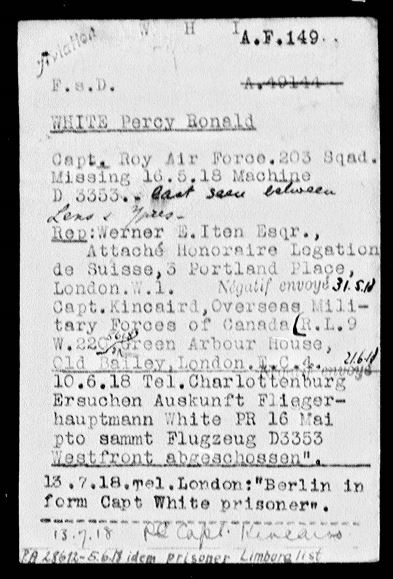 Aviation
W H I
A.F.149.
F.s.D.
A.49144
WHITE Percy Ronald
Capt. Roy Air Force.203 Sqad.
Missing 16.5.18 Machine
D 3353.. last seen between
Lens & Ypres-
Rep:Werner E.Iten Esqr.,
Attaché Honoraire Legation
de Suisse,3 Portland Place,
London.W.1. Négatif envoyé 31.5.18
Capt.Kincaird,Overseas Mili-
tary Forces of Canada(R.L.9
W.220 Green Arbour House,
Old Bailey,London.E.C.4. 21.6.18
envoyé
10.6.18 Tel.Charlottenburg
Ersuchen Auskunft Flieger-
hauptmann White PR 16 Mai
pto sammt Flugzeug D3353
Westfront abgeschossen".
13.7.18.Tel.London:"Berlin in
form Capt White prisoner".
13.7.18 Capt. Kincaird
PA 28612-5.6.18 idem prisoner Limburg list